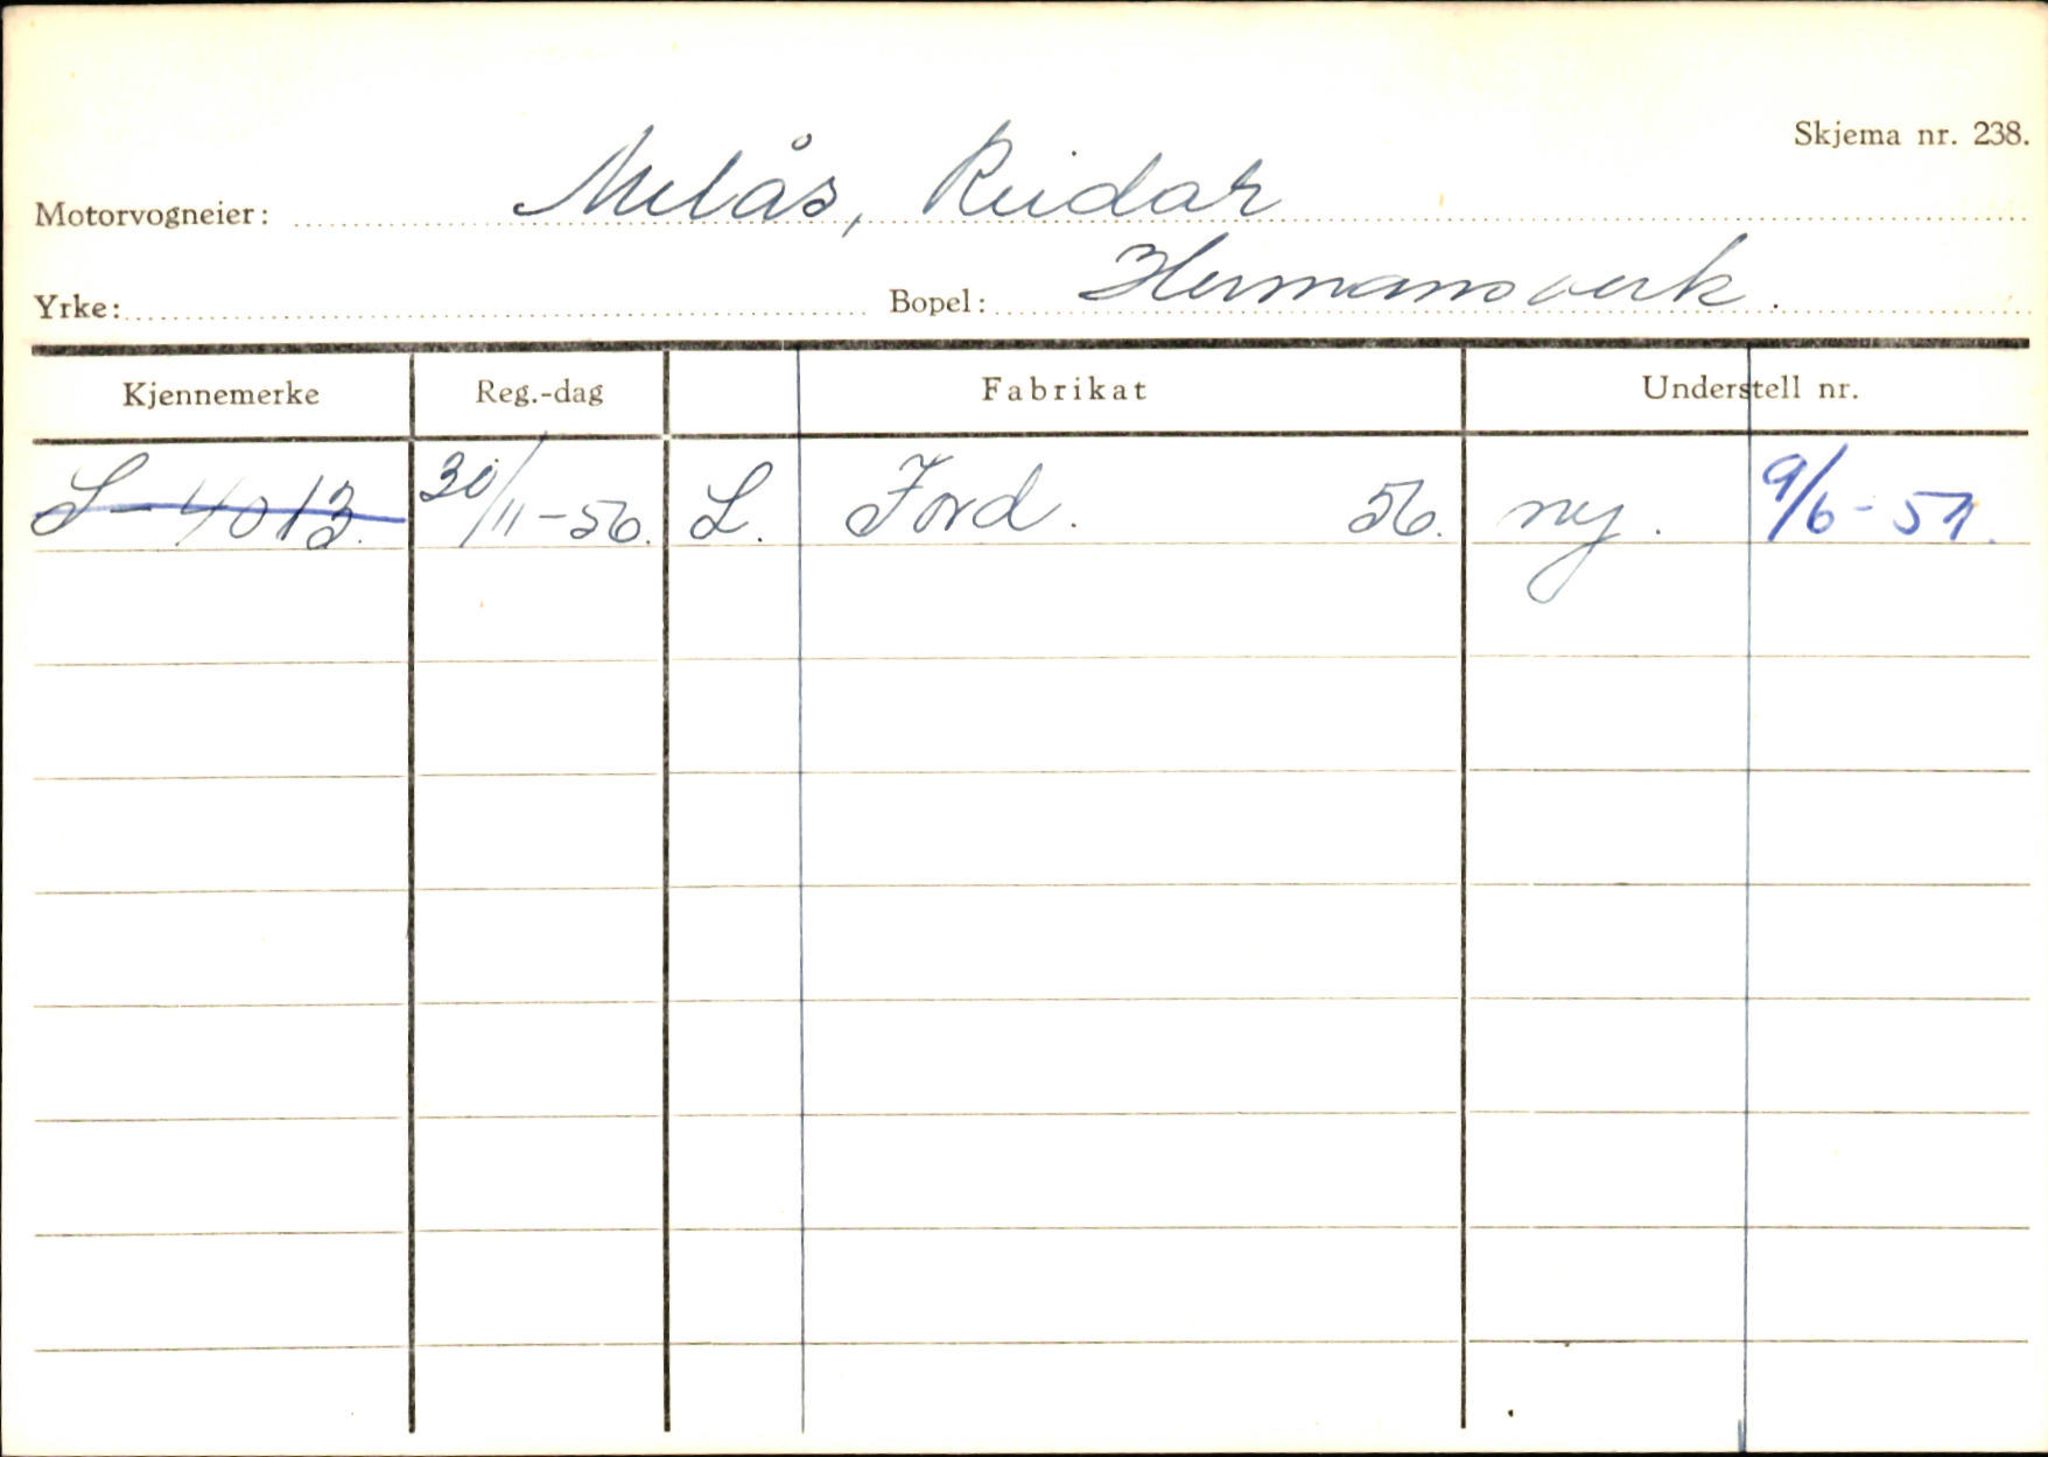 Skjema nr. 238.
Motorvogneier: Melås, Reidar
Yrke: Bopel: Hermansverk.
Kjennemerke Reg.-dag Fabrikat Understell nr.
S-4013. 30/11-56. L. Ford. 56. ny. 9/6-57.